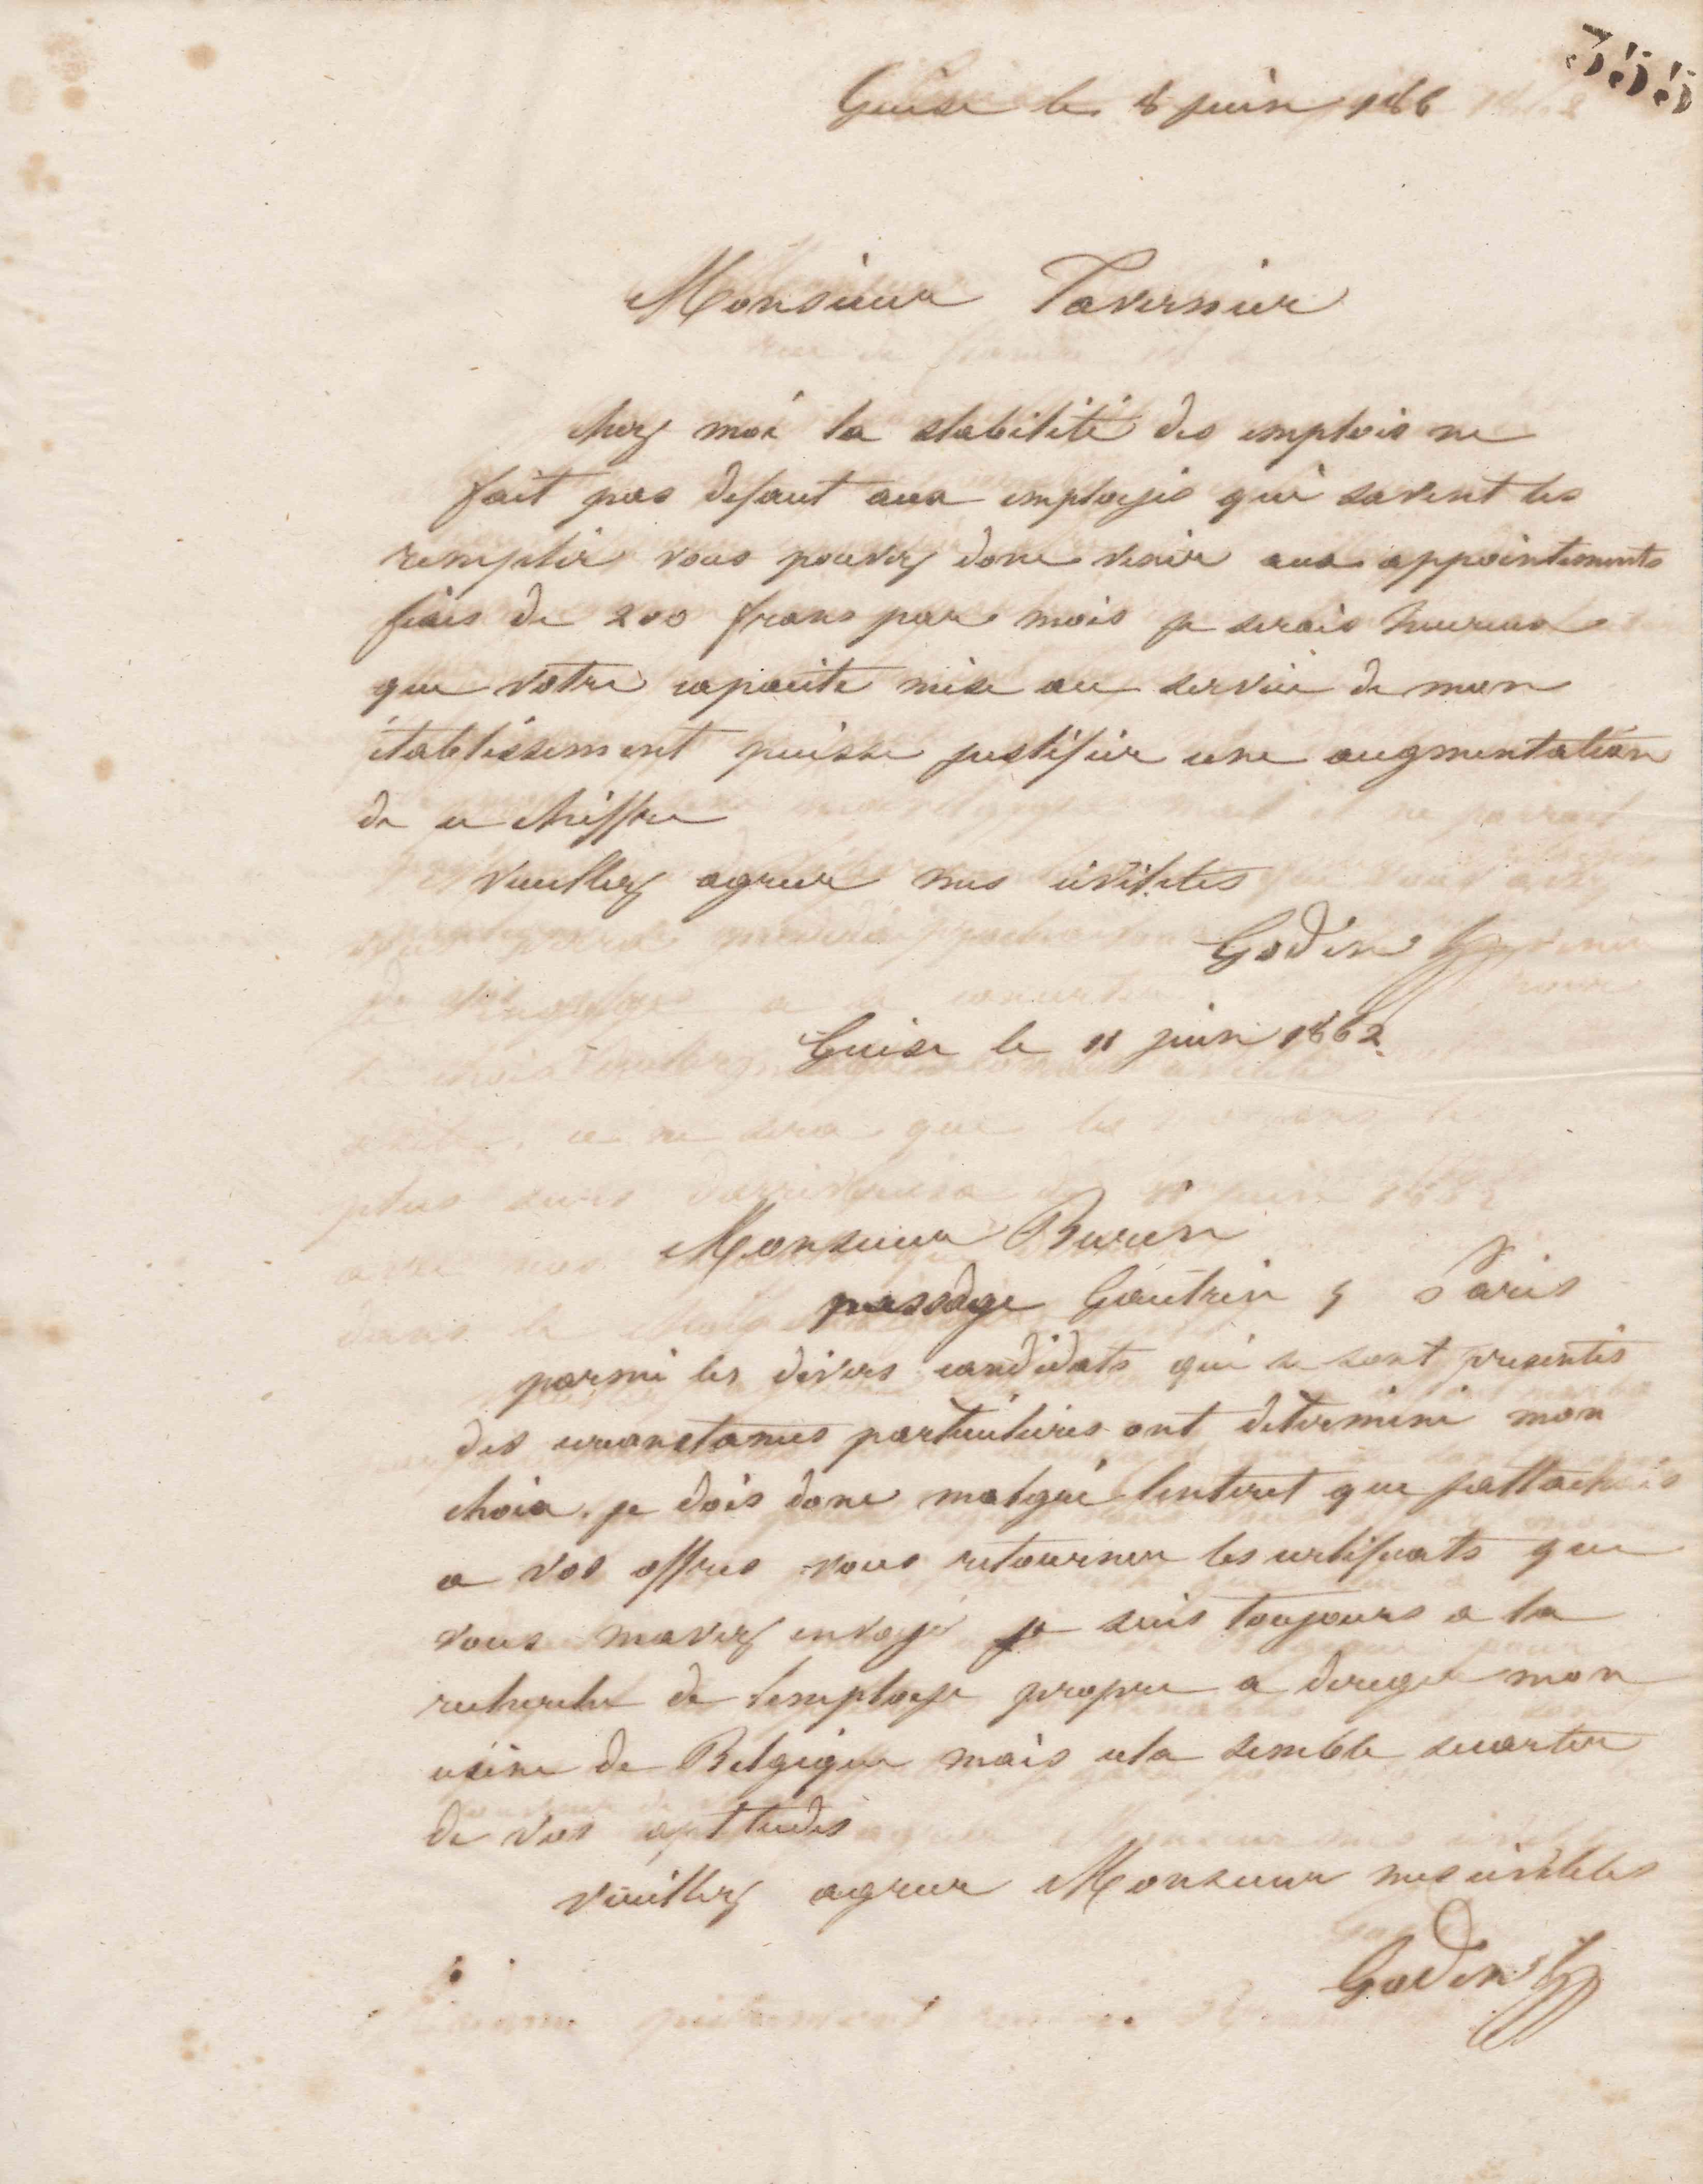 555
Guise le 8 juin 186
Monsieur Tavernier
chez moi la stabilité des emplois ne
fait pas defaut aux employés qui savent les
remplir vous pouvez donc venir aux appointements
fixes de 200 frans par mois je serais heureux
que votre capacite mise au service de mon
établissement puisse justifier une augmentation
de ce chiffre
veuillez agreer mes civilites
Godin
Guise le 11 juin 1862
Monsieur Burin
passage Gautrin 5 Paris
parmi les divers candidats qui se sont presentés
des circonstances particulieres ont determiné mon
choix. je dois donc malgré linteret que jattachais
a vos offres vous retourner les certificats que
vous mavez envoyé je suis toujours a la
recherche de lemploye propre a diriger mon
usine de Belgique mais cela semble secarter
de vos aptitudes
veuillez agreer Monsieur mes civilites
Godin